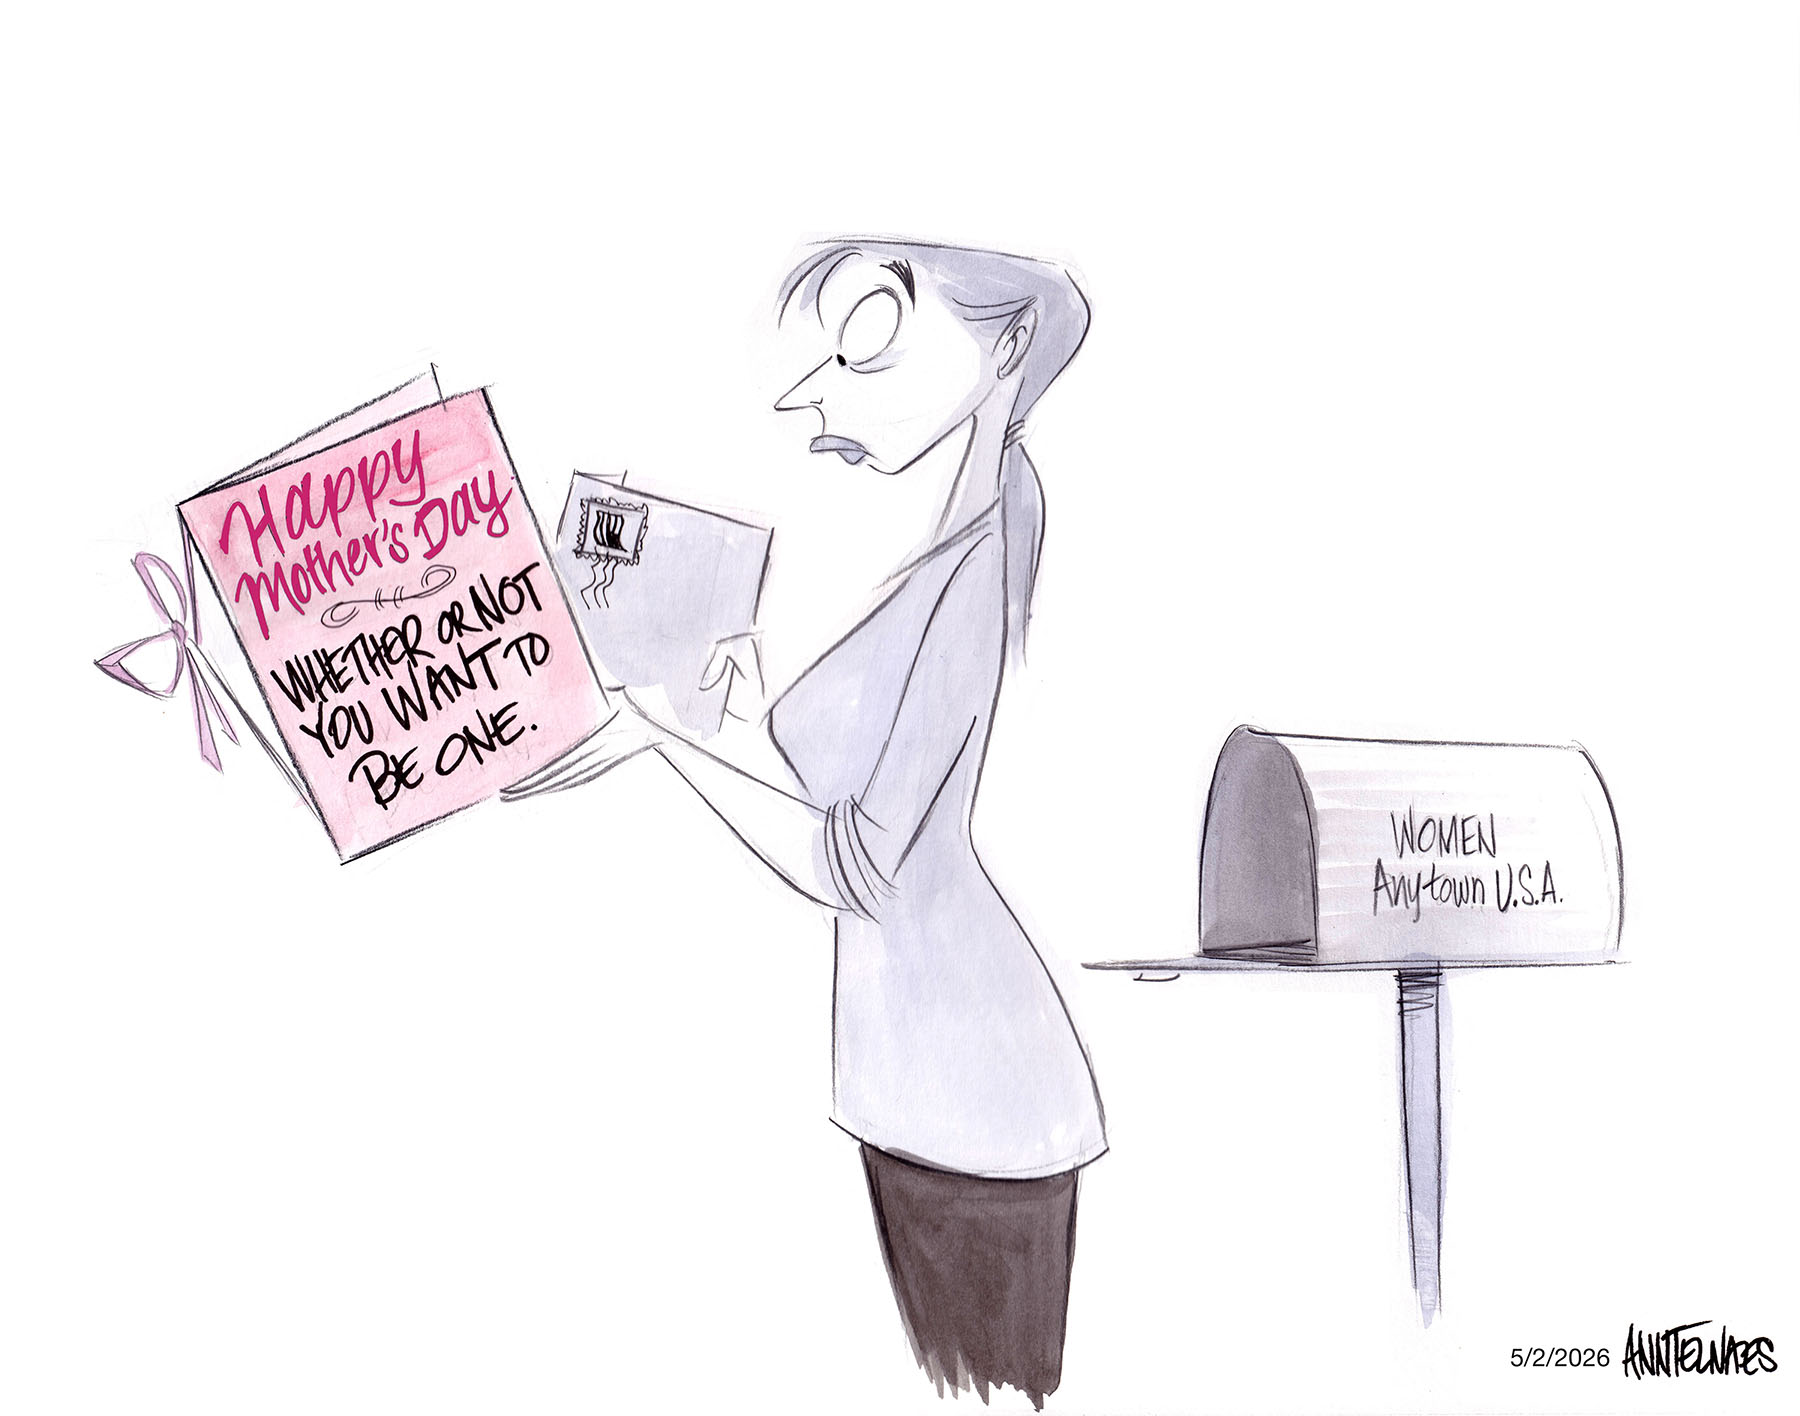 Happy
Mother's Day
WHETHER OR NOT
YOU WANT TO
BE ONE.
WOMEN
Anytown U.S.A.
5/2/2026 ANNTELNAES